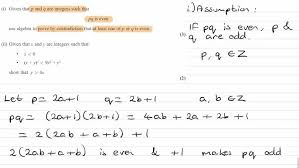 (i) Given that p and q are integers such that
pq is even
use algebra to prove by contradiction that at least one of p or q is even.
(3)
(ii) Given that x and y are integers such that
• x < 0
• (x + y)² < 9x² + y²
show that y > 4x
(2)
i) Assumption:
IF pq is even, p &
q are odd.
p, q ∈ ℤ
Let p = 2a+1 q = 2b+1 a, b ∈ ℤ
pq = (2a+1)(2b+1) = 4ab + 2a + 2b + 1
= 2(2ab + a + b) + 1
2(2ab+a+b) is even & +1 makes pq odd